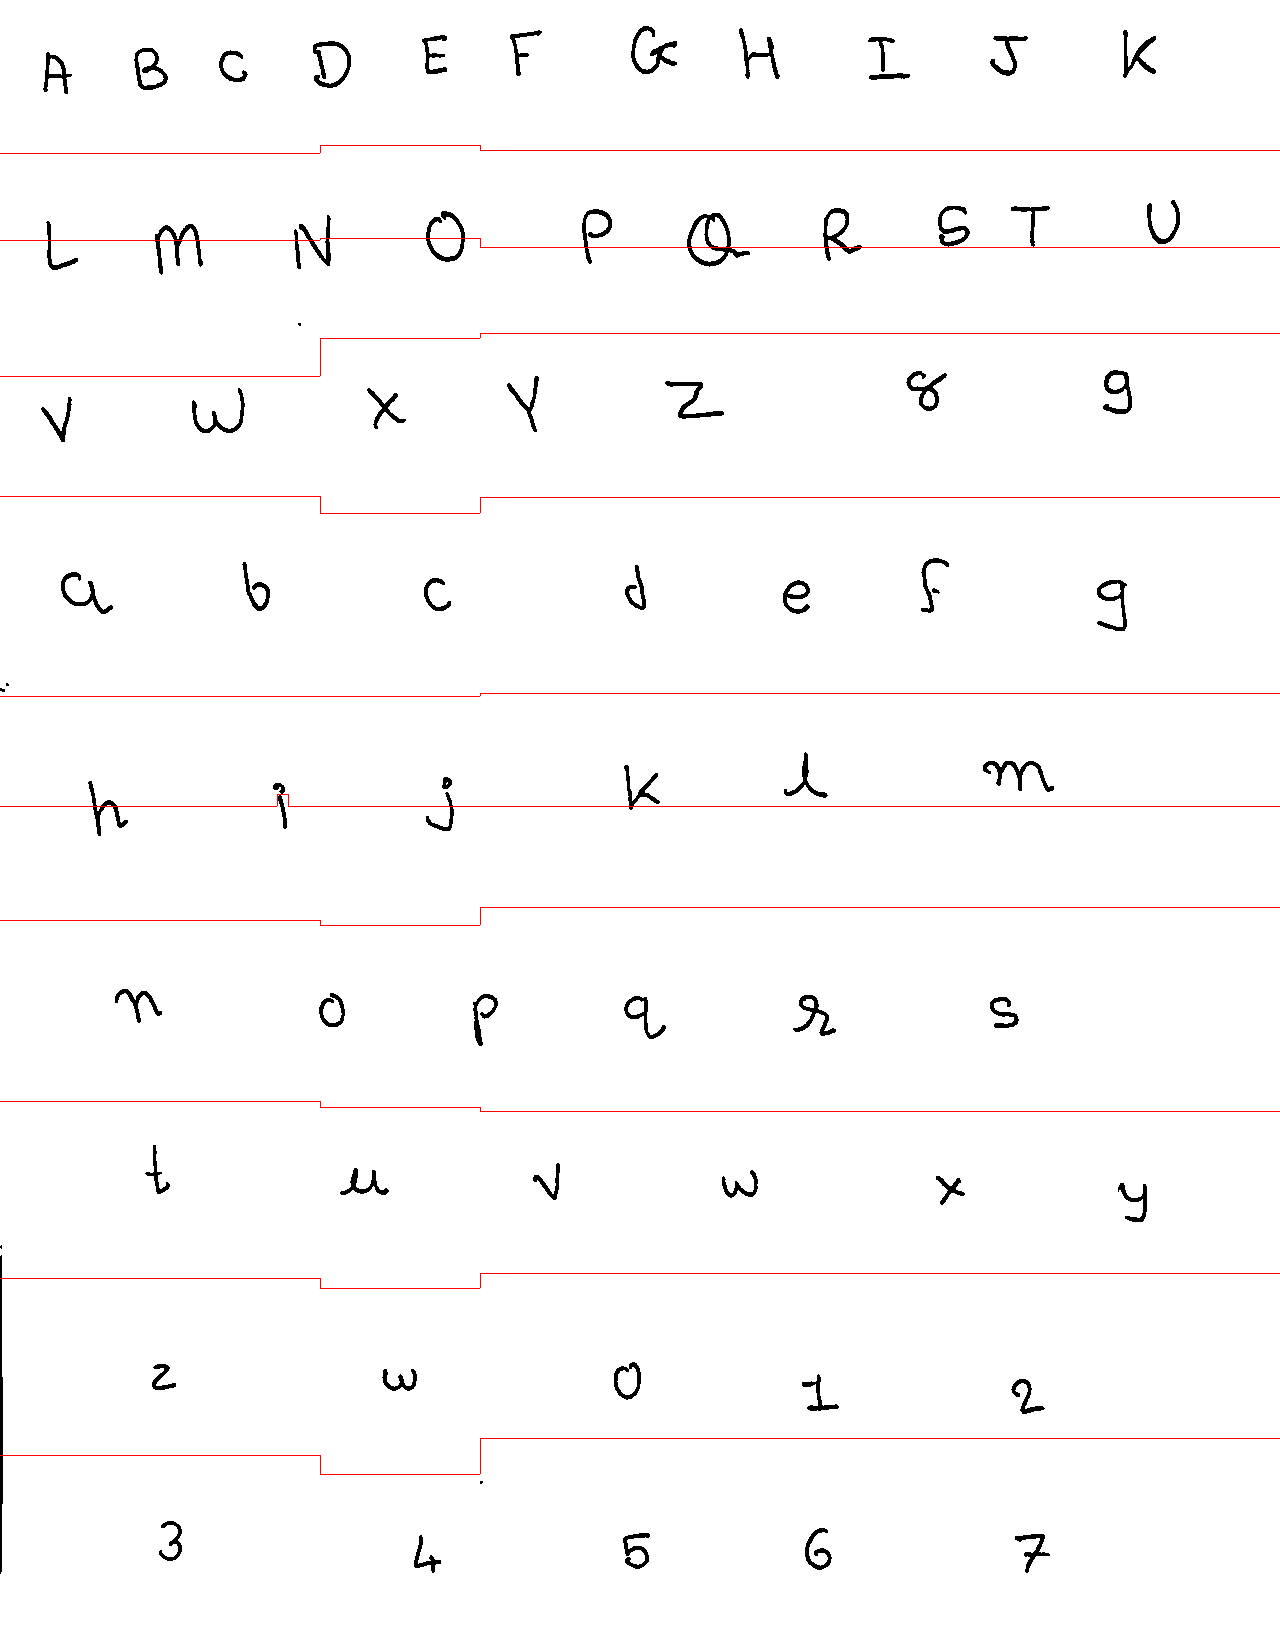 A B C D E F G H I J K
L M N O P Q R S T U
V W X Y Z 8 9
a b c d e f g
h i j k l m
n o p q r s
t u v w x y
z w 0 1 2
3 4 5 6 7